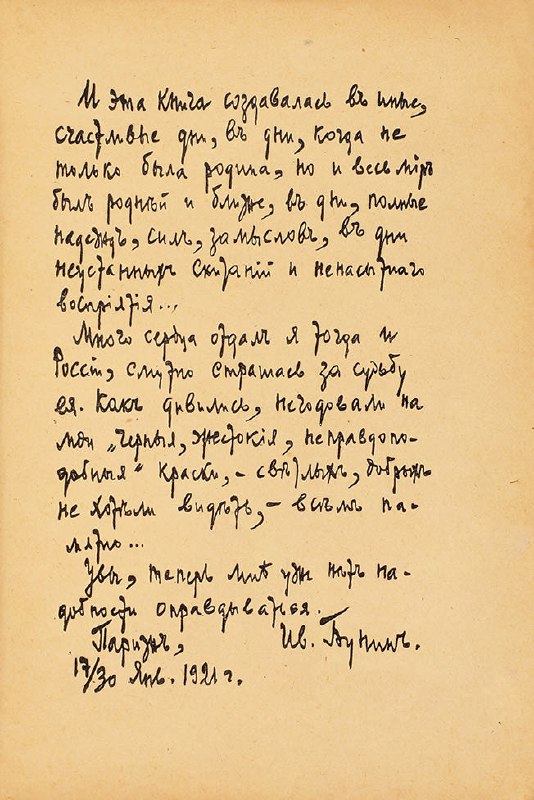 И эта книга создавалась въ иные,
счастливые дни, въ дни, когда не
только была родина, но и весь мiръ
былъ роднѣй и ближе, въ дни, полные
надеждъ, силъ, замысловъ, въ дни
неустанныхъ скитанiй и ненасытнаго
воспрiятiя...
Много сердца отдалъ я тогда и
Россiи, смутно страшась за судьбу
ея. Какъ дивились, негодовали на
мои „черныя, жестокiя, неправдопо-
добныя“ краски, - свѣтлыхъ, добрыхъ
не хотѣли видѣть, - всѣмъ па-
мятно...
Увы, теперь мнѣ ужъ нѣтъ на-
добности оправдываться.
Парижъ, Ив. Бунинъ.
17/30 Янв. 1921 г.